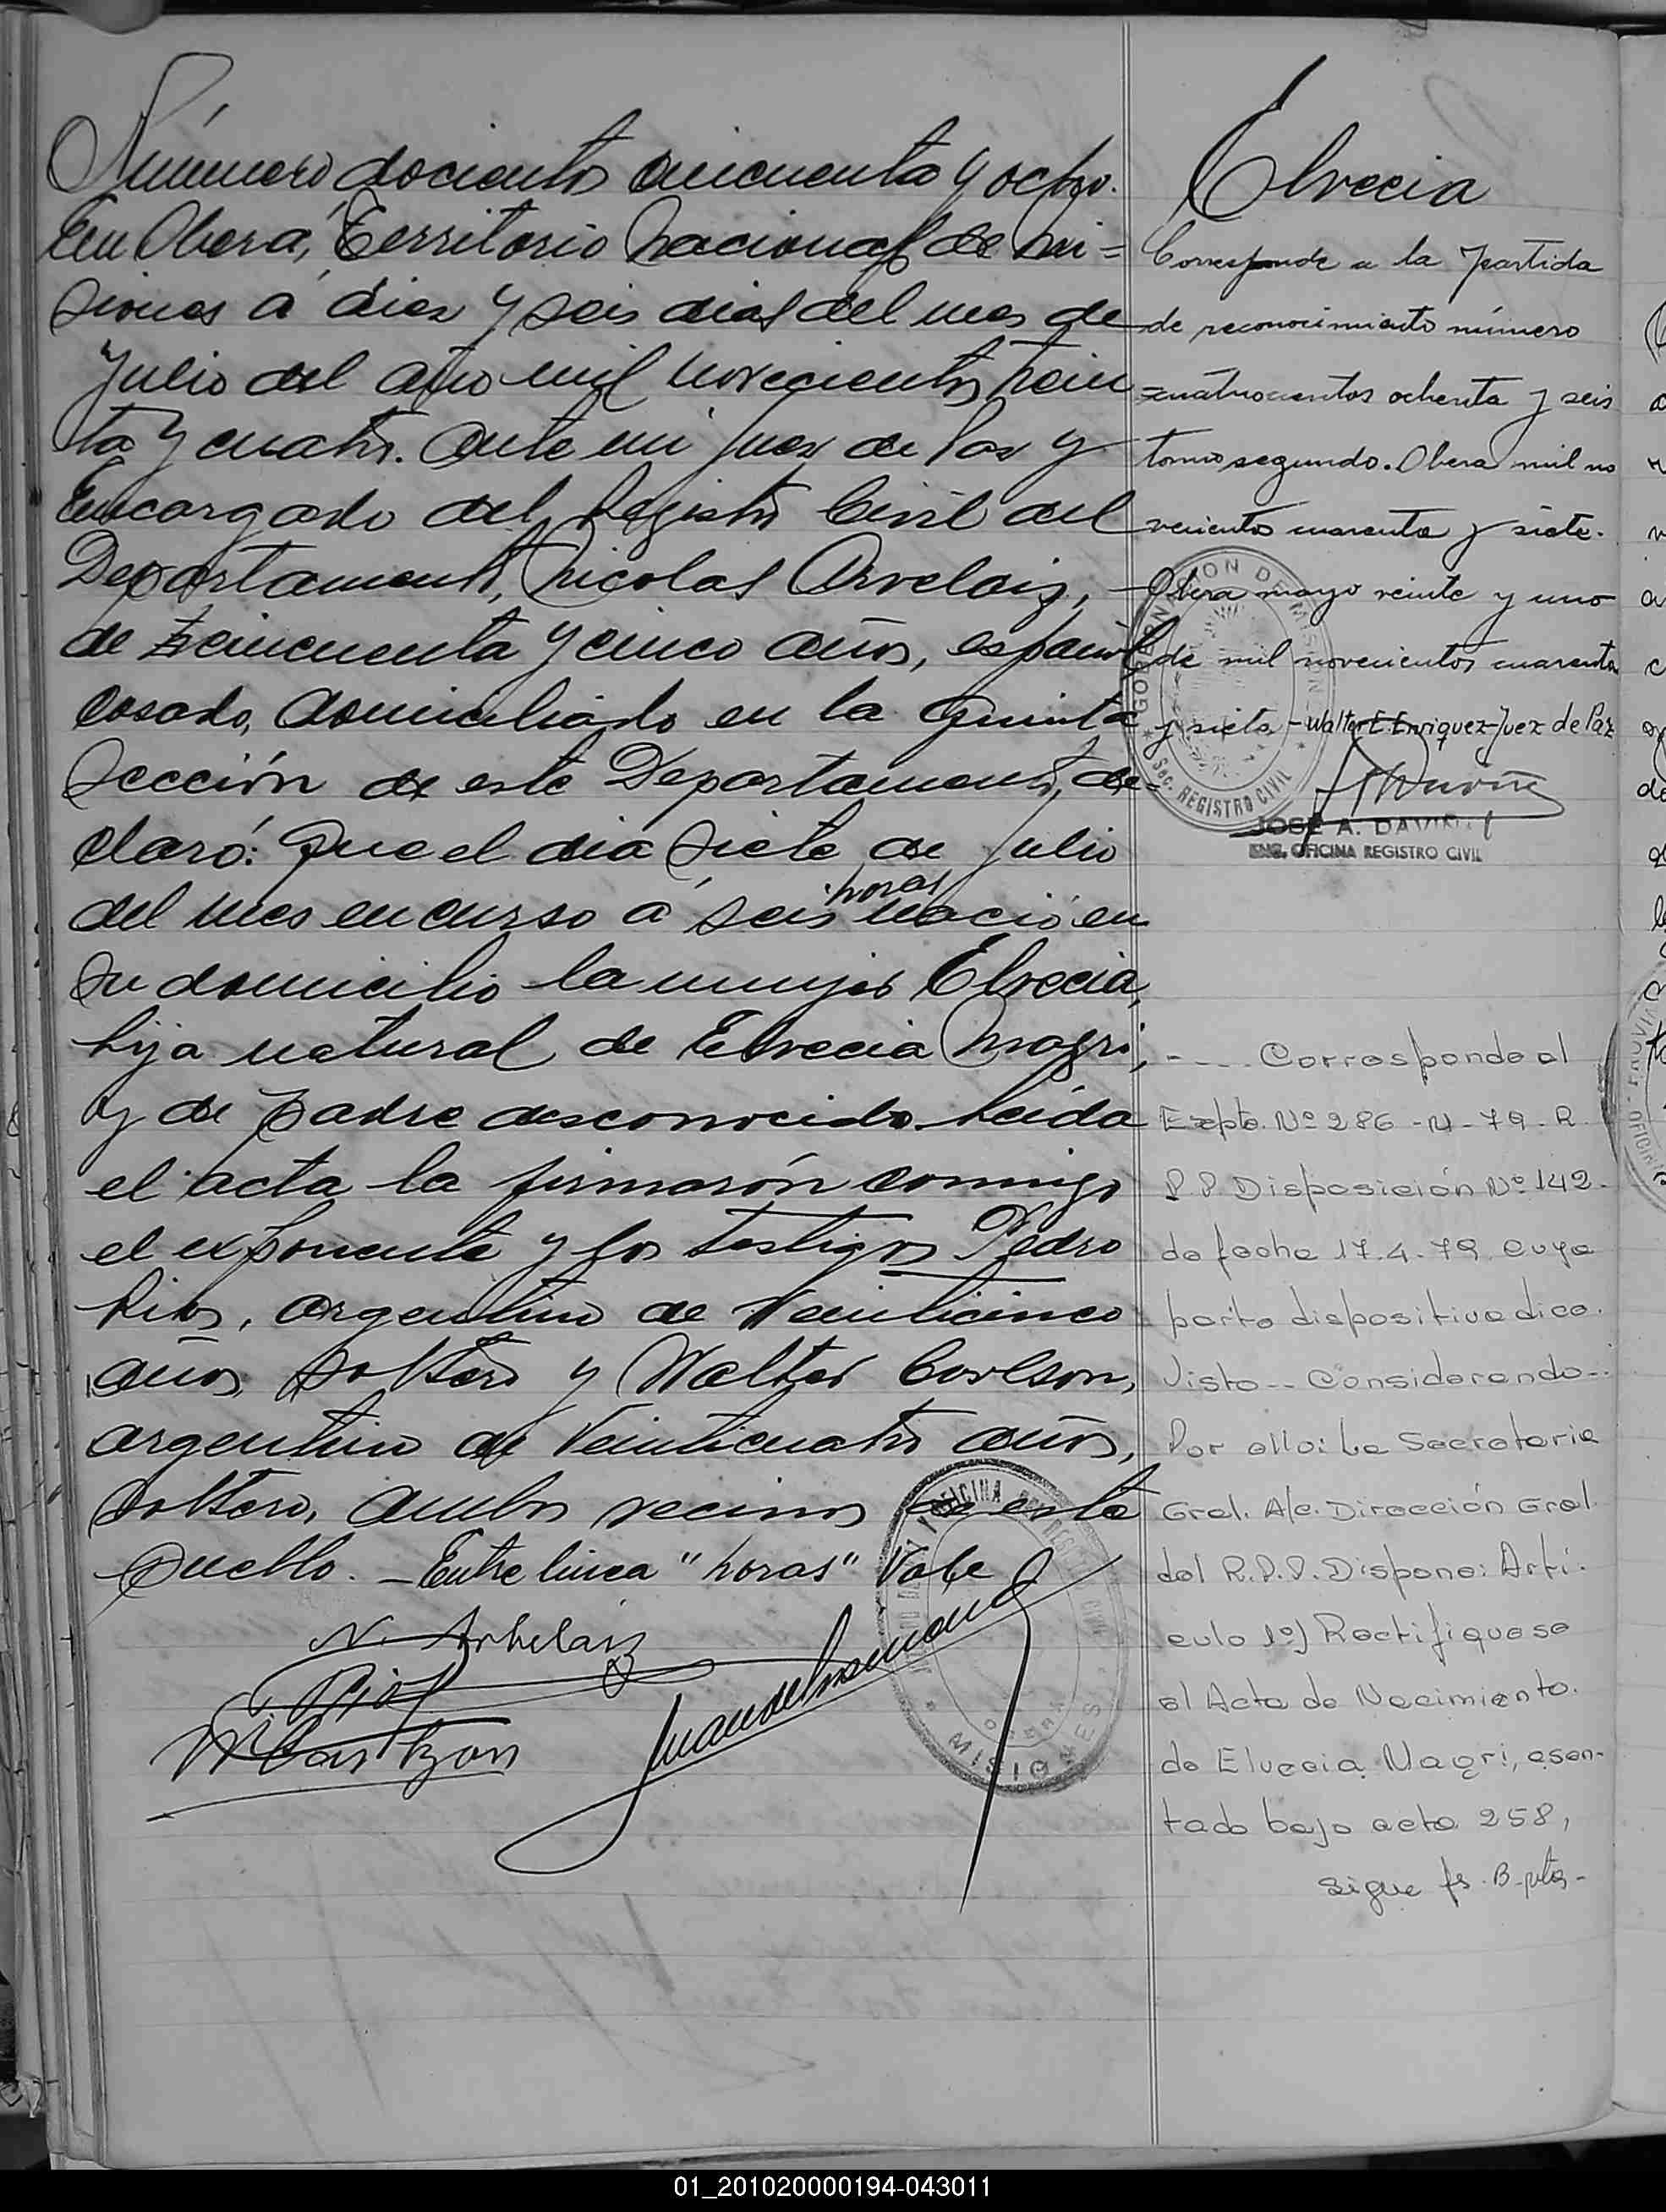 Número docientos cincuenta y ocho.
En Obera, Territorio Nacional de Mi=
siones a diez y seis dias del mes de
Julio del año mil novecientos trein
ta y cuatro. Ante mi Juez de Paz y
Encargado del Registro Civil del
Departamento, Nicolas Arvelaiz,
de cincuenta y cinco años, español
casado, domiciliado en la quinta
Sección de este Departamento, de=
claró: Que el dia siete de Julio
horas
del mes en curso a seis nació en
su domicilio la mujer Elvecia,
hija natural de Elvecia Magri,
y de padre desconocido. Leida
el acta la firmarón conmigo
el exponente y los testigos Pedro
Rios, argentino de veinticinco
años, soltero y Walter Carlson,
argentino de veinticuatro años,
soltero, ambos vecinos de este
pueblo. - Entre linea "horas" Vale
N. Arbelaiz
P. Rios
W. Carlzon
Elvecia
Corresponde a la partida
de reconocimiento número
cuatrocientos ochenta y seis
tomo segundo. Obera mil no
vecientos cuarenta y siete.
Obera mayo veinte y uno
de mil novecientos cuarenta
y siete - Walter E. Enriquez - Juez de Paz
GOBERNACION DE MISIONES
Sec. REGISTRO CIVIL
JOSE A. DAVIÑA
ENC. OFICINA REGISTRO CIVIL
- ... Corresponde al
Expte. Nº 286 - M - 79 - R.
P.P. Disposición Nº 142.
de fecha 17.4.79 cuya
parte dispositiva dice.
Visto -- Considerando --:
Por ello: La Secretaria
Gral. A/c. Dirección Gral.
del R.P.P. Dispone: Artí-
culo 1º) Rectifiquese
el Acta de Nacimiento.
de Elvecia Magri, asen-
tado bajo acta 258,
sigue fs.
OFICINA DEL REGISTRO CIVIL
OBERA
MISIONES
01_201020000194-043011